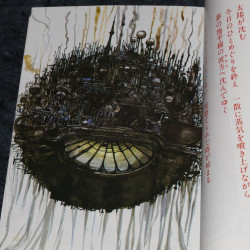 太陽が沈む
今日のひとめぐりを終え 一散に蒸気を噴き上げながら
夢の地平線の彼方へ沈んでゆく
が始まる